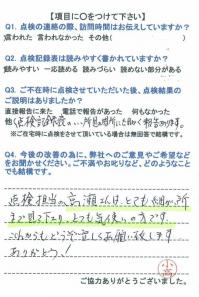 【項目に○をつけて下さい】
Q1. 点検の連絡の際、訪問時間はお伝えしていますか？
言われた 言われなかった その他( )
Q2. 点検記録表は読みやすく書かれていますか？
読みやすい 一応読める 読みづらい 読めない部分がある
Q3. ご不在時に点検させていただいた後、点検結果の
ご説明はありましたか？
直接報告に来た 電話で報告があった 何もなかった
他(点検記録表
※ご在宅時に点検させて頂いている場合は無回答で結構です。
Q4. 今後の改善の為に、弊社へのご意見やご希望など
をお聞かせください。ご不満やお叱りなど、どのようなこと
でも結構です。
点検担当の高瀬さんは、とても細い所
まで見て下さり、とても気使いの方です。
これからもどうぞ宜しくお願い致します
ありがとう！
小高
ご協力ありがとうございました。